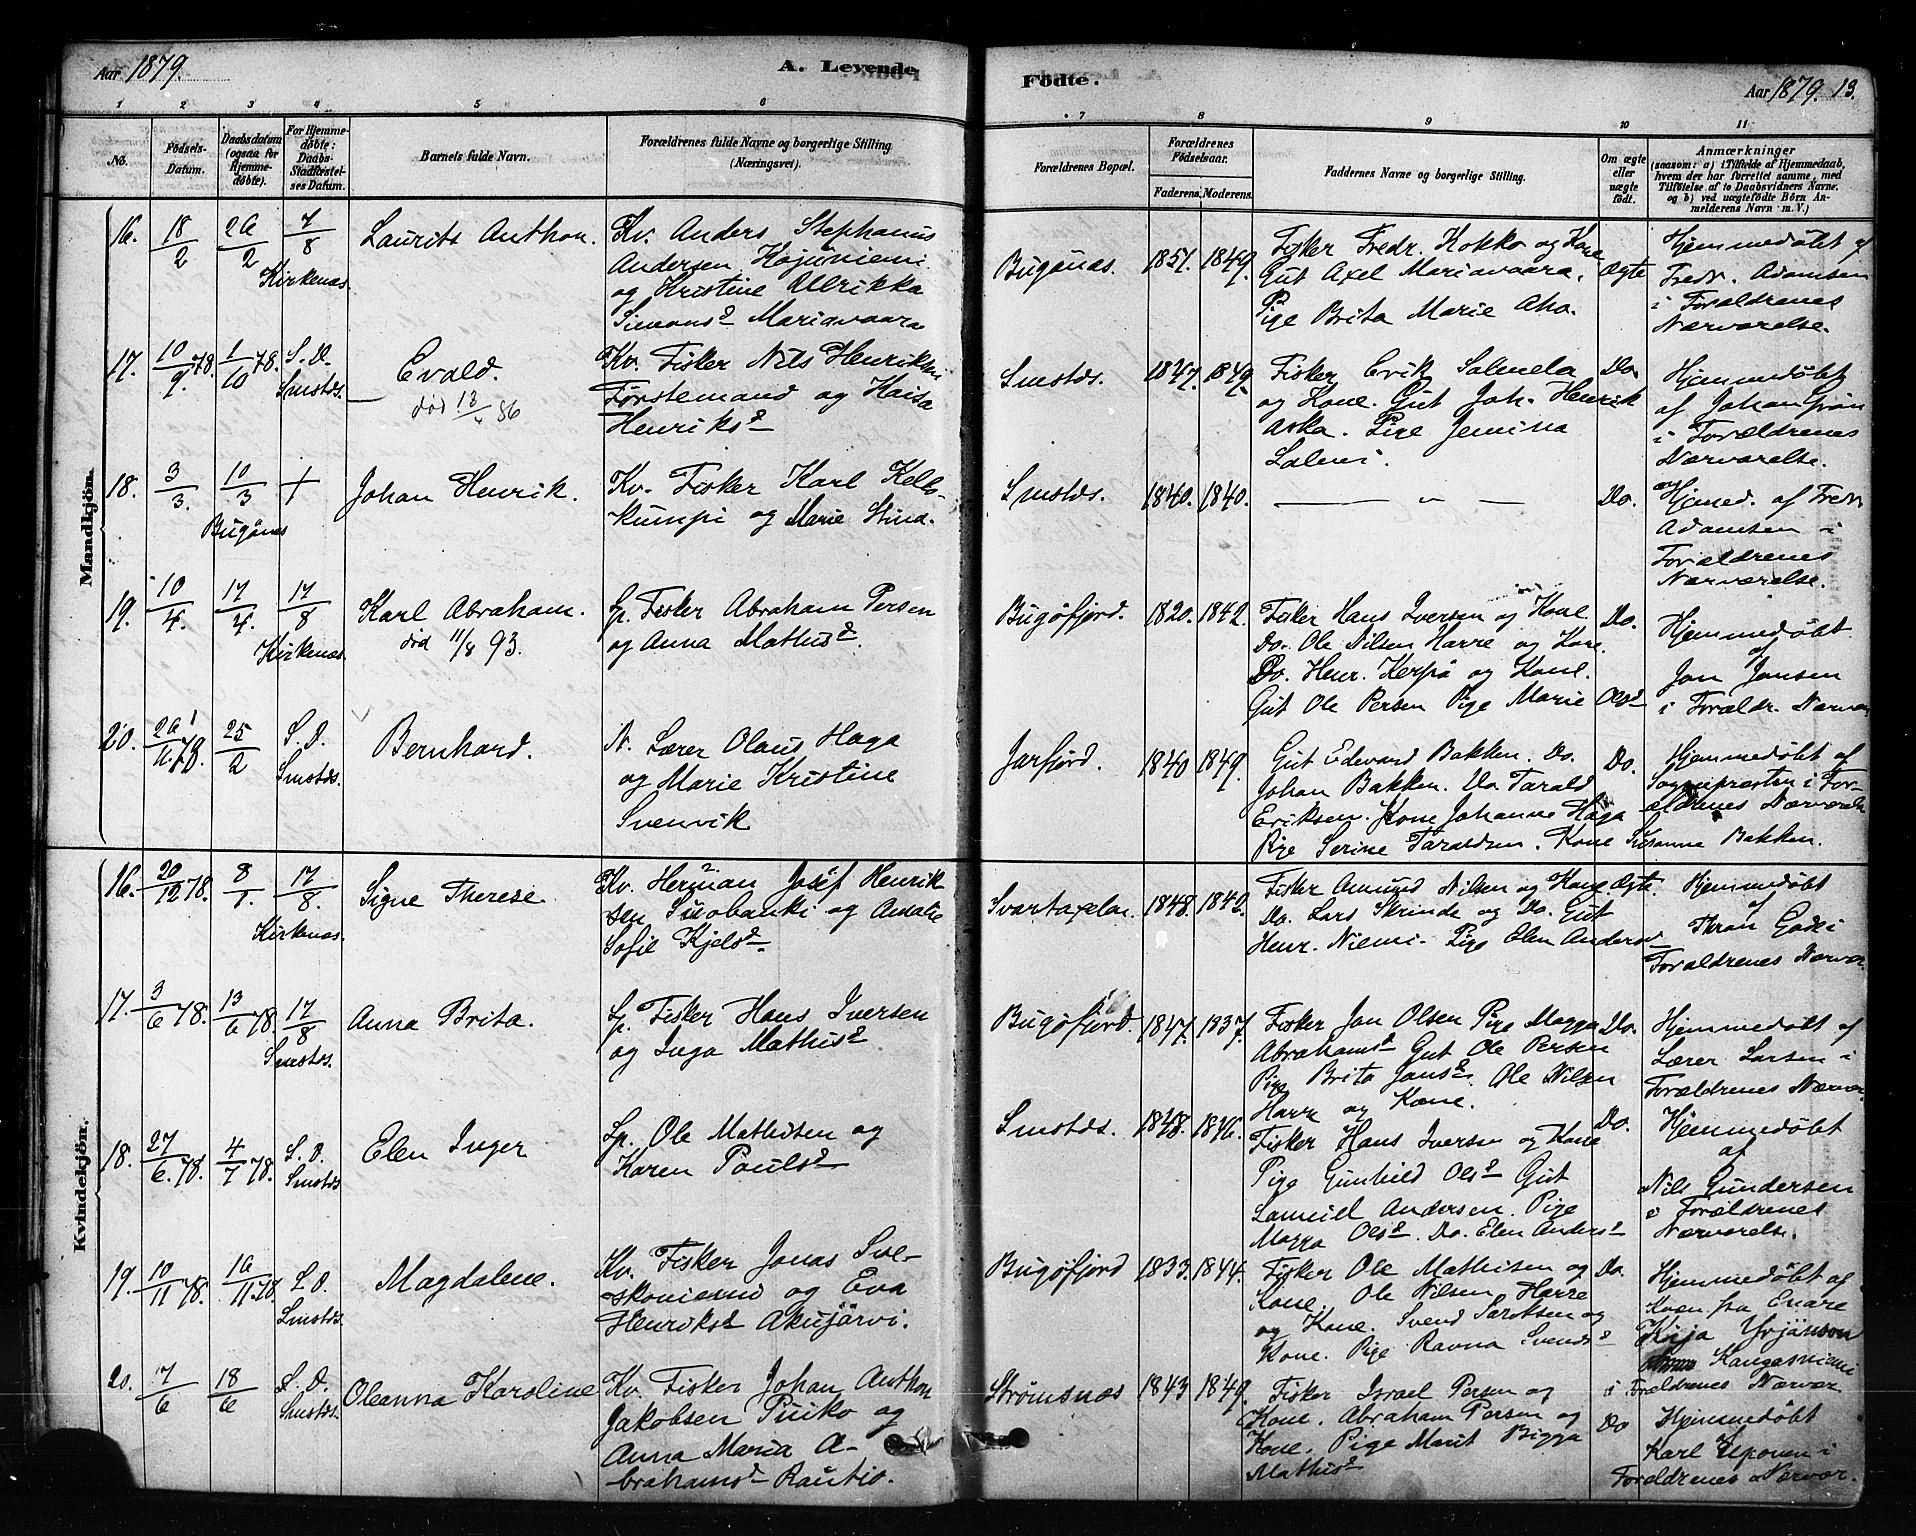 Aar 1879.
A. Levende
Födte.
Aar 1879. 13.
1 2 3 4 5 6 7 8 9 10 11
No.
Födsels-
Datum.
Daabsdatum
(ogsaa for
Hjemme-
døbte).
For Hjemme-
døbte:
Daabs-
Stadfæstel-
ses Datum.
Barnets fulde Navn.
Forældrenes fulde Navne og borgerlige Stilling
(Næringsvei).
Forældrenes Bopæl.
Forældrenes
Födselsaar.
Faderens. Moderens.
Faddernes Navne og borgerlige Stilling.
Om ægte
eller
uægte
födt.
Anmærkninger
(saasom: a) i Tilfælde af Hjemmedaab,
hvem der har forrettet samme, med
Tilföielse af to Daabsvidners Navne,
og b) ved uægtefödte Börn An-
melderens Navn m. V.)
Mandkjön.
16. 18/2 26/2 7/8
Kirkenæs.
Laurits Anthon.
Kv. Anders Stephanus
Andersen Kojuniemi
og Kristine Ulrikka
Simonsd Mariavaara
Bugønæs. 1851. 1849.
Fisker Fredr. Kokko og Kone
Gut Axel Mariavaara.
Pige Brita Marie Aho.
Ægte
Hjemmedøbt af
Fredr. Adamsen
i Forældrenes
Nærværelse.
17. 10/9 78. 1/10 78. S. D.
Smstds.
Evald.
død 13/4 86
Kv. Fisker Nils Henriksen
Førstemand og Kaisa
Henriksd
Smstds. 1847. 1849.
Fisker Erik Salmela
og Kone. Gut Joh. Henrik
Aska. Pige Jemina
Salmi.
Do.
Hjemmedøbt
af Johan Grön
i Forældrenes
Nærværelse.
18. 3/3. 10/3 +
Bugönæs
Johan Henrik.
Kv. Fisker Karl Kello-
kumpi og Marie Stind.
Smstds. 1840. 1840. — " — Do.
Hjemd. af Fredr
Adamsen i
Forældrenes
Nærværelse.
19. 10/4. 17/4. 17/8
Kirkenæs.
Karl Abraham.
død 11/8 93.
Lp. Fisker Abraham Persen
og Anna Mathisd.
Bugøfjord. 1820. 1842.
Fisker Hans Iversen og Kone
Do. Ole Nilsen Harre og Kone.
Do. Henr. Kerpö og Kone.
Gut Ole Persen Pige Marie Olsd
Do.
Hjemmedøbt
af
Jon Jonsen
i Forældr. Nærvær.
20. 26/11. 78. 25/2 S. D.
Smstds.
Bernhard.
N. Lærer Olaus Haga
og Marie Kristine
Svenvik
Jarfjord. 1840 1849.
Gut Edvard Bakken. Do.
Johan Bakken. Do Tarald
Eriksen. Kone Johanne Haga
Pige Serine Taraldsen. Kone Susanne Bakken.
Do.
Hjemmedøbt af
Sognepræsten i For-
ældrenes Nærværelse
Kvindekjön.
16. 20/12 78. 8/1. 17/8.
Kirkenæs.
Signe Therese.
Kv. Herman Josef Henrik
sen Suobanki og Amalie
Sofie Kjelsd.
Svartaxelen. 1848. 1842.
Fisker Amund Nilsen og Kone
Do. Lars Skrinde og Do. Gut
Henr. Niemi. Pige Elen Andersd
Ægte
Hjemmedøbt
af
Thron Gade i
Forældrenes Nærvær.
17. 3/6 78. 13/6 78. 17/8
Smstds.
Anna Brita.
Lp. Fisker Hans Iversen
og Inga Mathisd.
Bugøfjord. 1847. 1837.
Fisker Jon Olsen Pige Magga
Abrahamsd Gut Ole Persen
Pige Brita Jonsd. Ole Nilsen
Harre og Kone.
Do.
Hjemmedøbt af
Lærer Larsen i
Forældrenes Nærvær.
18. 27/6. 78. 4/7 78. S. D.
Smstds
Elen Inger
Lp. Ole Mathisen og
Karen Poulsd
Smstds. 1848. 1846.
Fisker Hans Iversen og Kone
Pige Gunhild Olsd Gut
Samuel Andersen. Pige
Magga Olsd. Do. Elen Andersd
Do.
Hjemmedöbt
af
Nils Gundersen
i Forældrenes
Nærværelse.
19. 10/11 78. 16/11. 78. S. D.
Smstds.
Magdalene.
Kv. Fisker Jonas Sve-
skoniemi og Eva
Henriksd Akujärvi.
Bugøfjord 1833. 1844.
Fisker Ole Mathisen og
Kone. Ole Nilsen Harre
og Kone. Svend Sarcksen og
Kone. Pige Ravna Svendsd
Do.
Hjemmedøbt af
Kvæn fra Enare
Kaja Yrjänson
Kangasniemi
i Forældrenes Nærvær
20. 7/6 18/6 S. D.
Smstds.
Oleanna Karoline
Kv. Fisker Johan Anthon
Jakobsen Puiko og
Anna Maria A-
brahamsd Rautio.
Strømsnæs 1843 1849.
Fisker Israel Persen og
Kone. Abraham Persen og
Kone. Pige Marit Bigga
Mathisd
Do
Hjemmedöbt
af
Karl Uponen i
Forældrenes Nærvær.